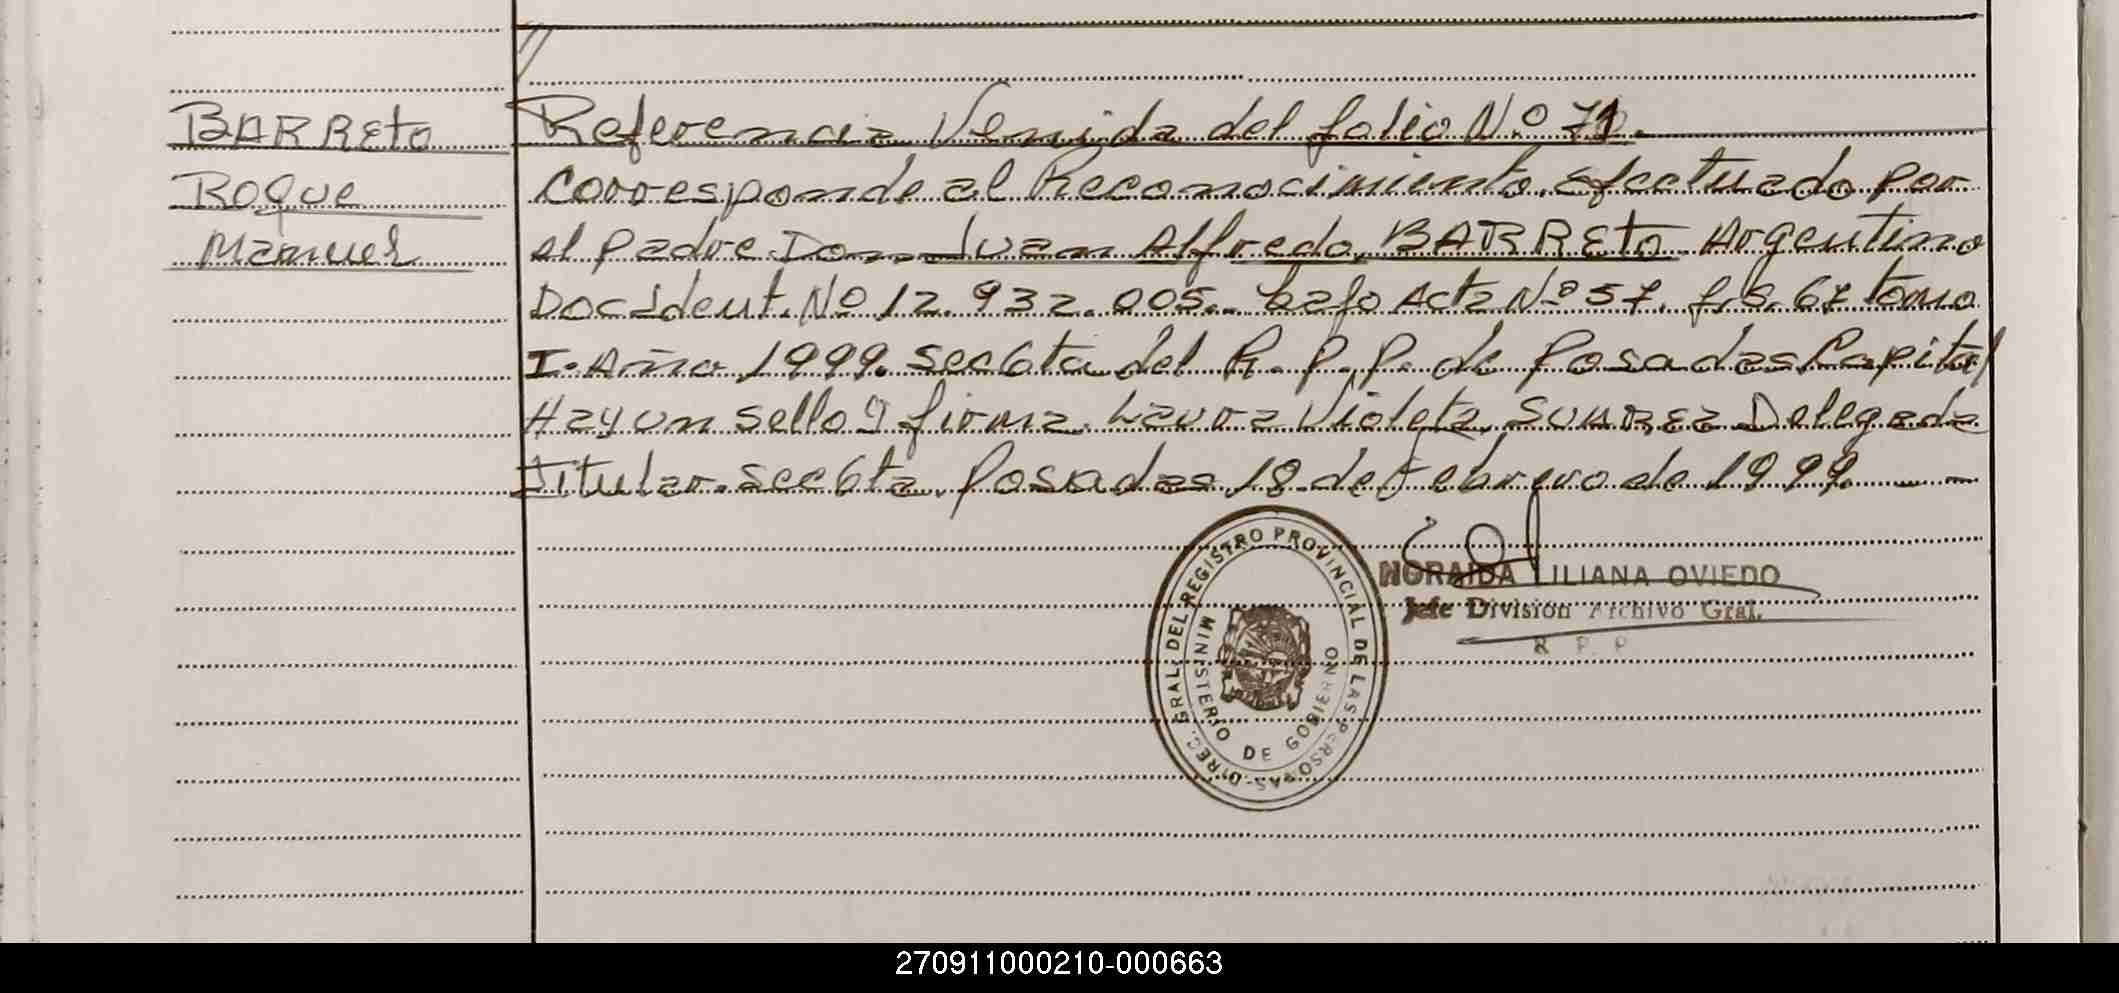 //
BARReto
Roque
Manuel
Referencia Venida del folio Nº 71.
Corresponde al Reconocimiento, efectuado por
el padre Don Juan Alfredo BARReto Argentino
Doc Ident. Nº 12.932.005.. bajo Acta Nº 57. fs. 67 tomo
I. Año 1999. Sec 6ta del R.P.P. de Posadas Capital
Hay un sello y firma. Laura Violeta SUAREZ Delegada
Titular. Sec 6ta, Posadas 18 de Febrero de 1999.
DIREC. GRAL. DEL REGISTRO PROVINCIAL DE LAS PERSONAS-
MINISTERIO DE GOBIERNO
NORAIDA LILIANA OVIEDO
Jefe Division Archivo Gral.
R P. P
270911000210-000663